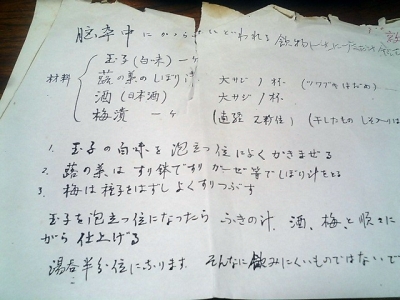 脳卒中にかからないといわれる飲物
材料
玉子(白味) 一ケ
蕗の葉のしぼり汁 大サジ1杯 (ツワブキはだめ)
酒(日本酒) 大サジ1杯
梅漬 一ケ (直径
1. 玉子の白味を泡立つ位によくかきまぜる
2. 蕗の葉はすり鉢ですりガーゼ等でしぼり汁をとる
3. 梅は種子をはずしよくすりつぶす
玉子を泡立つ位になったら ふきの汁、酒、梅、と順々に
がら仕上げる
湯呑半分位になります。 そんなに飲みにくいものではないで